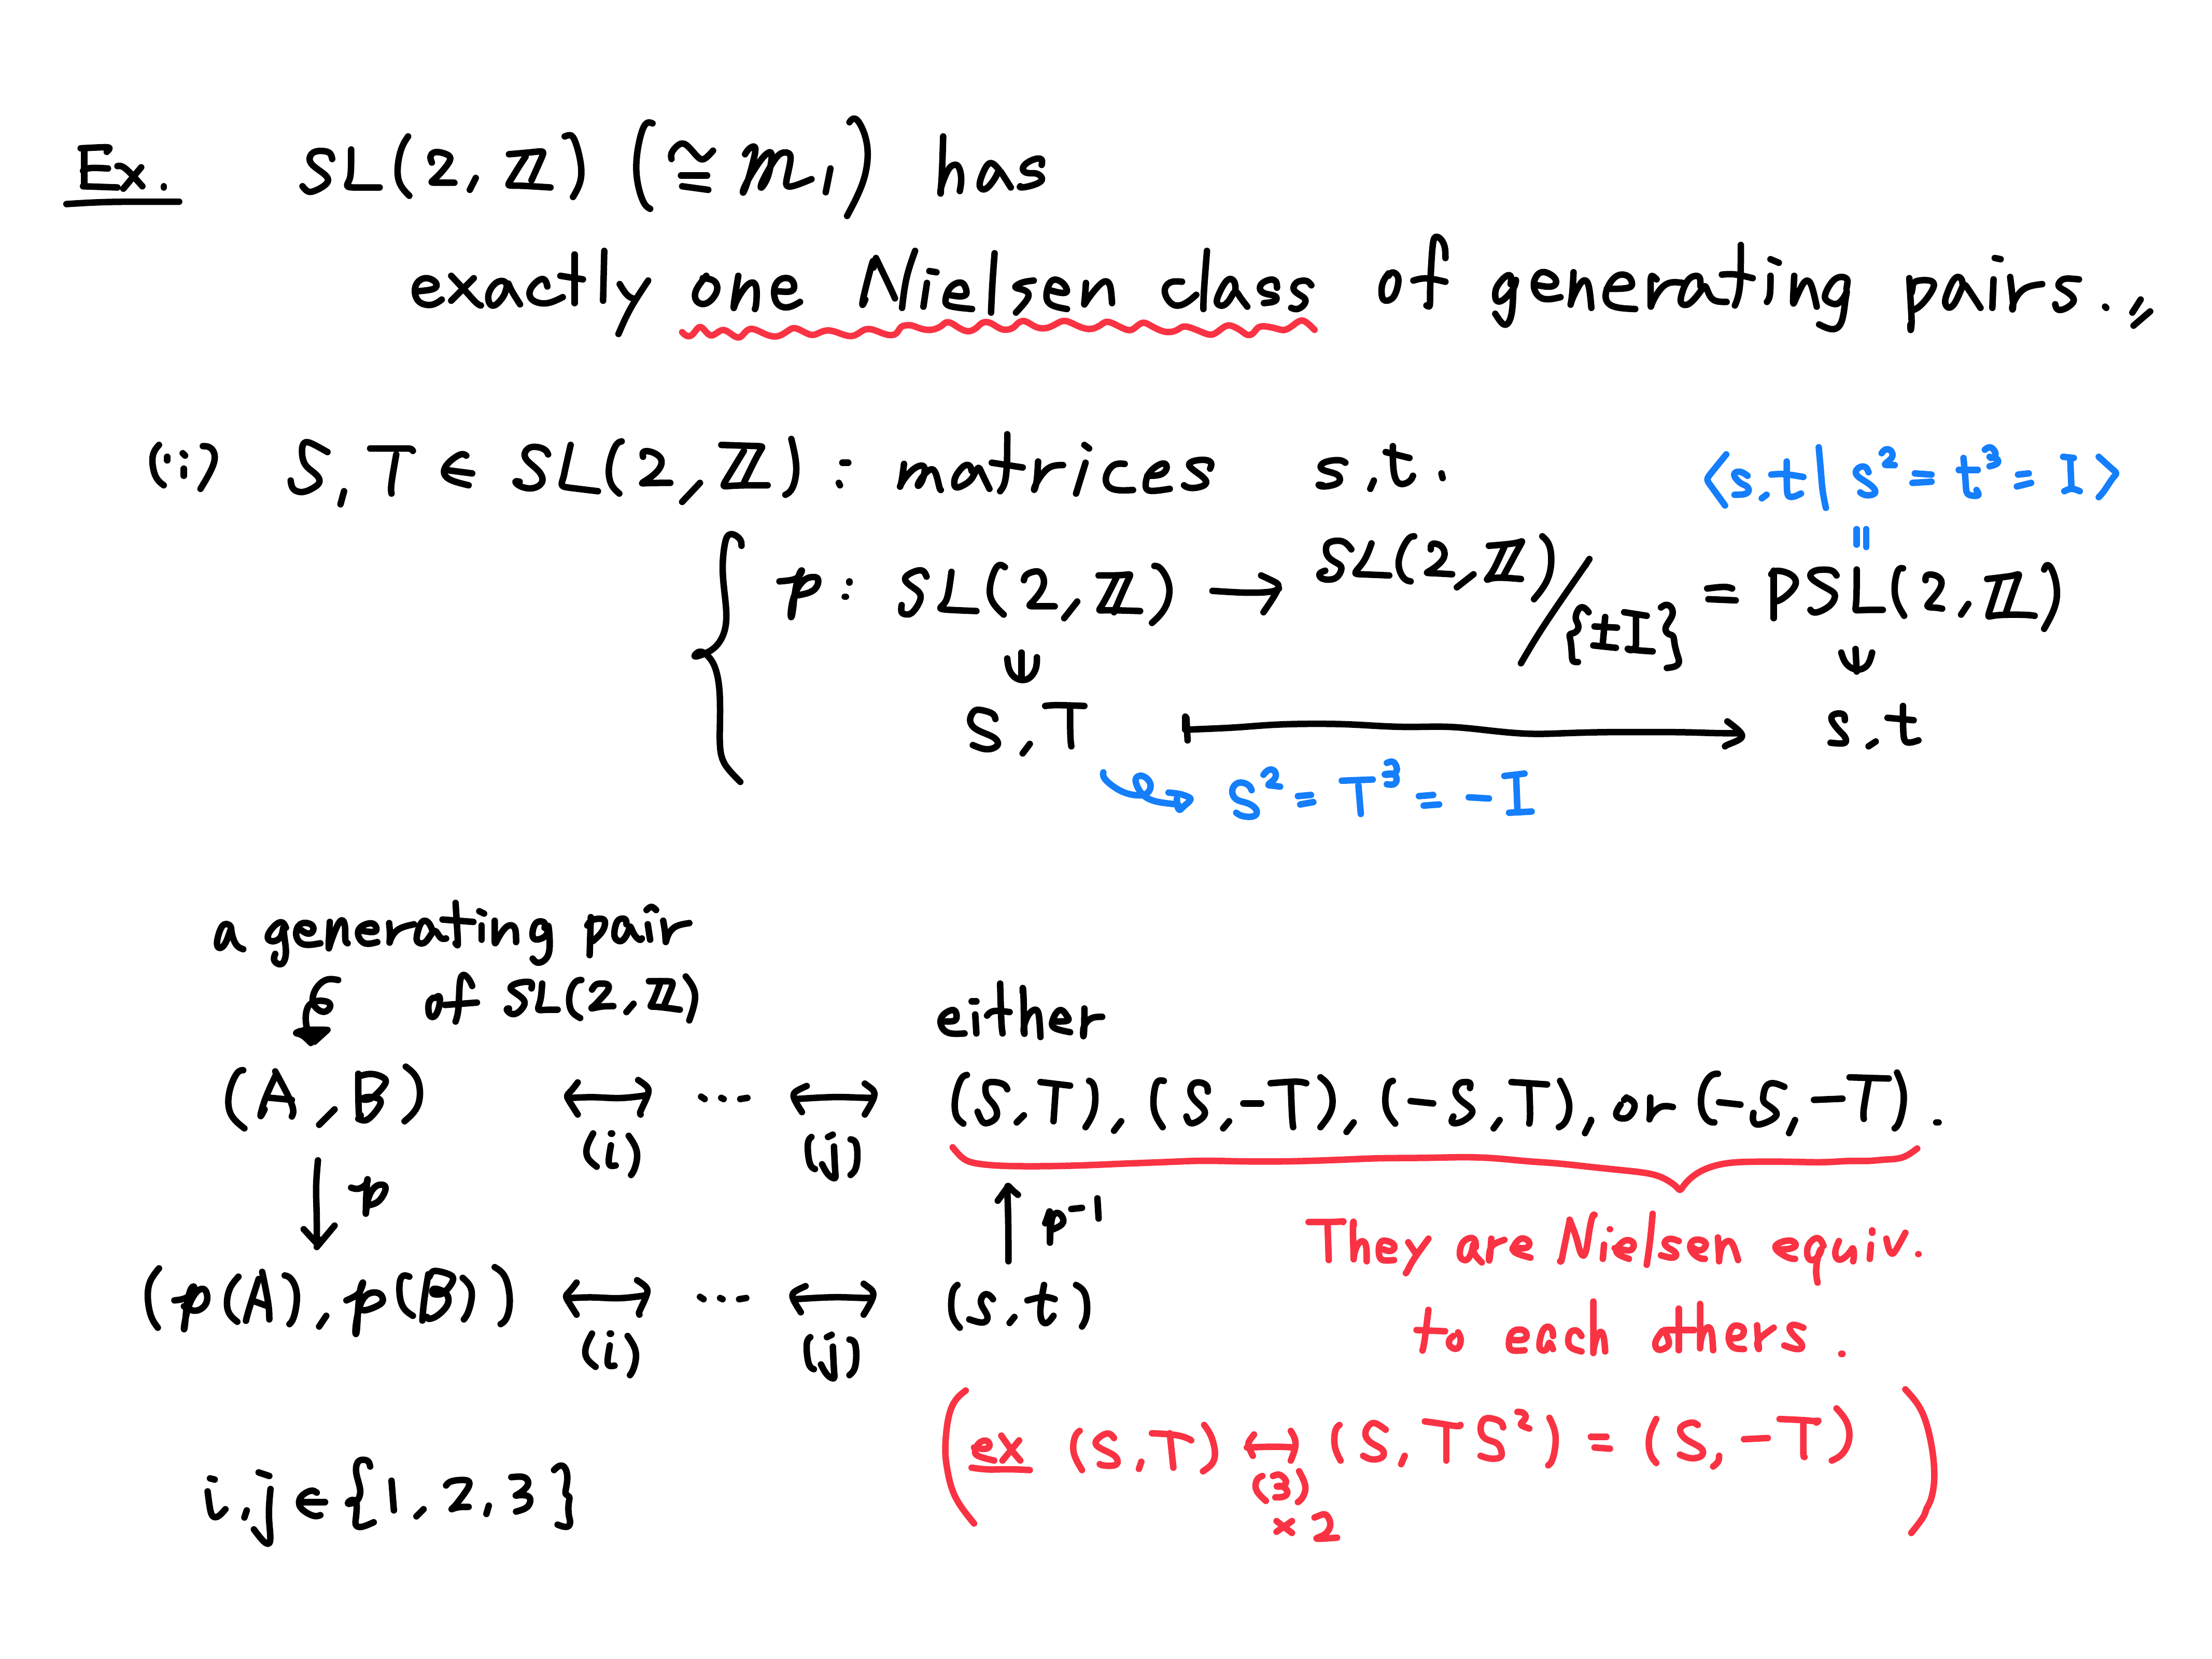 Ex. SL(2,ℤ) (≅ 𝓜₁) has
exactly one Nielsen class of generating pairs.,,
(∵) S,T ∈ SL(2,ℤ) : matrices s.t.
⟨s,t | s² = t³ = I⟩
p : SL(2,ℤ) → SL(2,ℤ)/{±I} = PSL(2,ℤ)
S,T ↦ s,t
S² = T³ = -I
a generating pair
of SL(2,ℤ)
either
(A,B) ⟷ ... ⟷ (S,T), (S,-T), (-S,T), or (-S,-T).
(i) (j)
↓ p ↑ p⁻¹
They are Nielsen equiv.
(p(A), p(B)) ⟷ ... ⟷ (s,t)
(i) (j)
to each others.
(ex (S,T) ⟷ (S,TS²) = (S,-T))
(3)
×2
i,j ∈ {1,2,3}